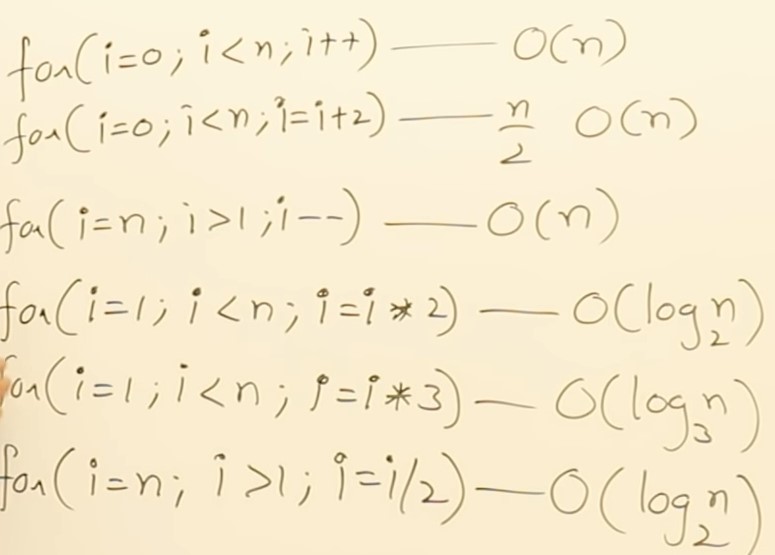 for(i=0; i<n; i++) —— O(n)
for(i=0; i<n; i=i+2) —— n/2 O(n)
for(i=n; i>1; i--) —— O(n)
for(i=1; i<n; i=i*2) —— O(log₂n)
for(i=1; i<n; i=i*3) — O(log₃n)
for(i=n; i>1; i=i/2) —— O(log₂n)